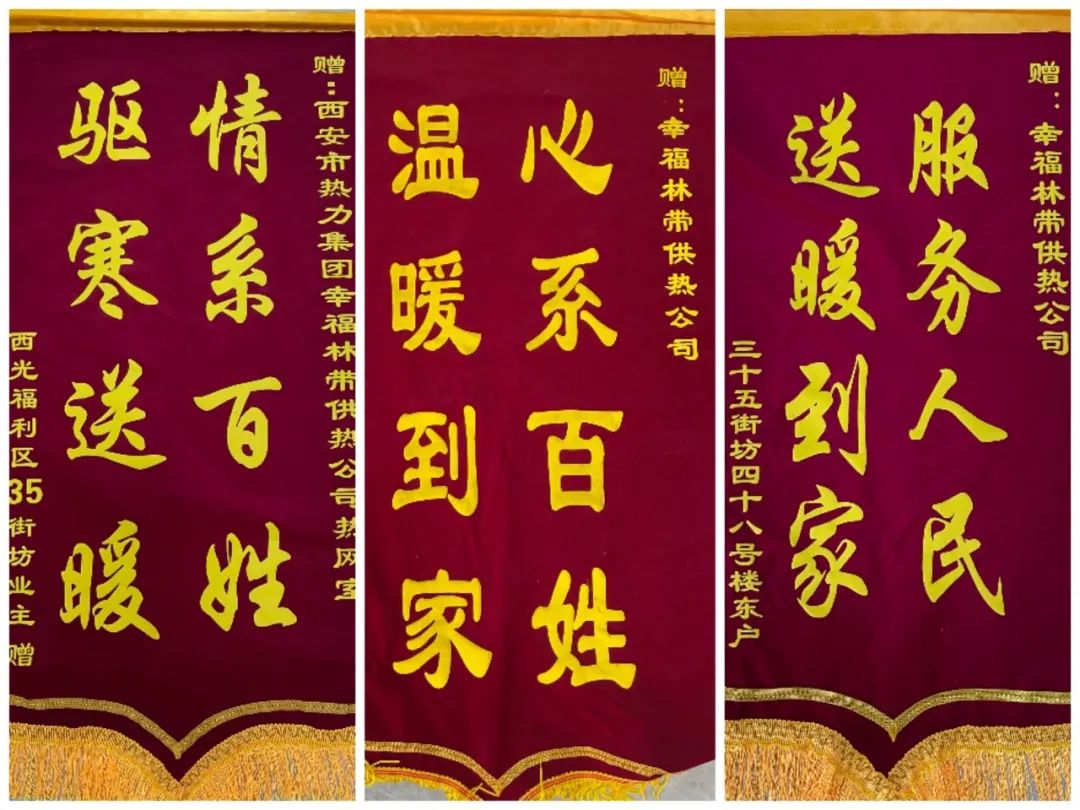 赠：西安市热力集团幸福林带供热公司热网室
情系百姓
驱寒送暖
西光福利区35街坊业主 赠
赠：幸福林带供热公司
心系百姓
温暖到家
赠：幸福林带供热公司
服务人民
送暖到家
三十五街坊四十八号楼东户